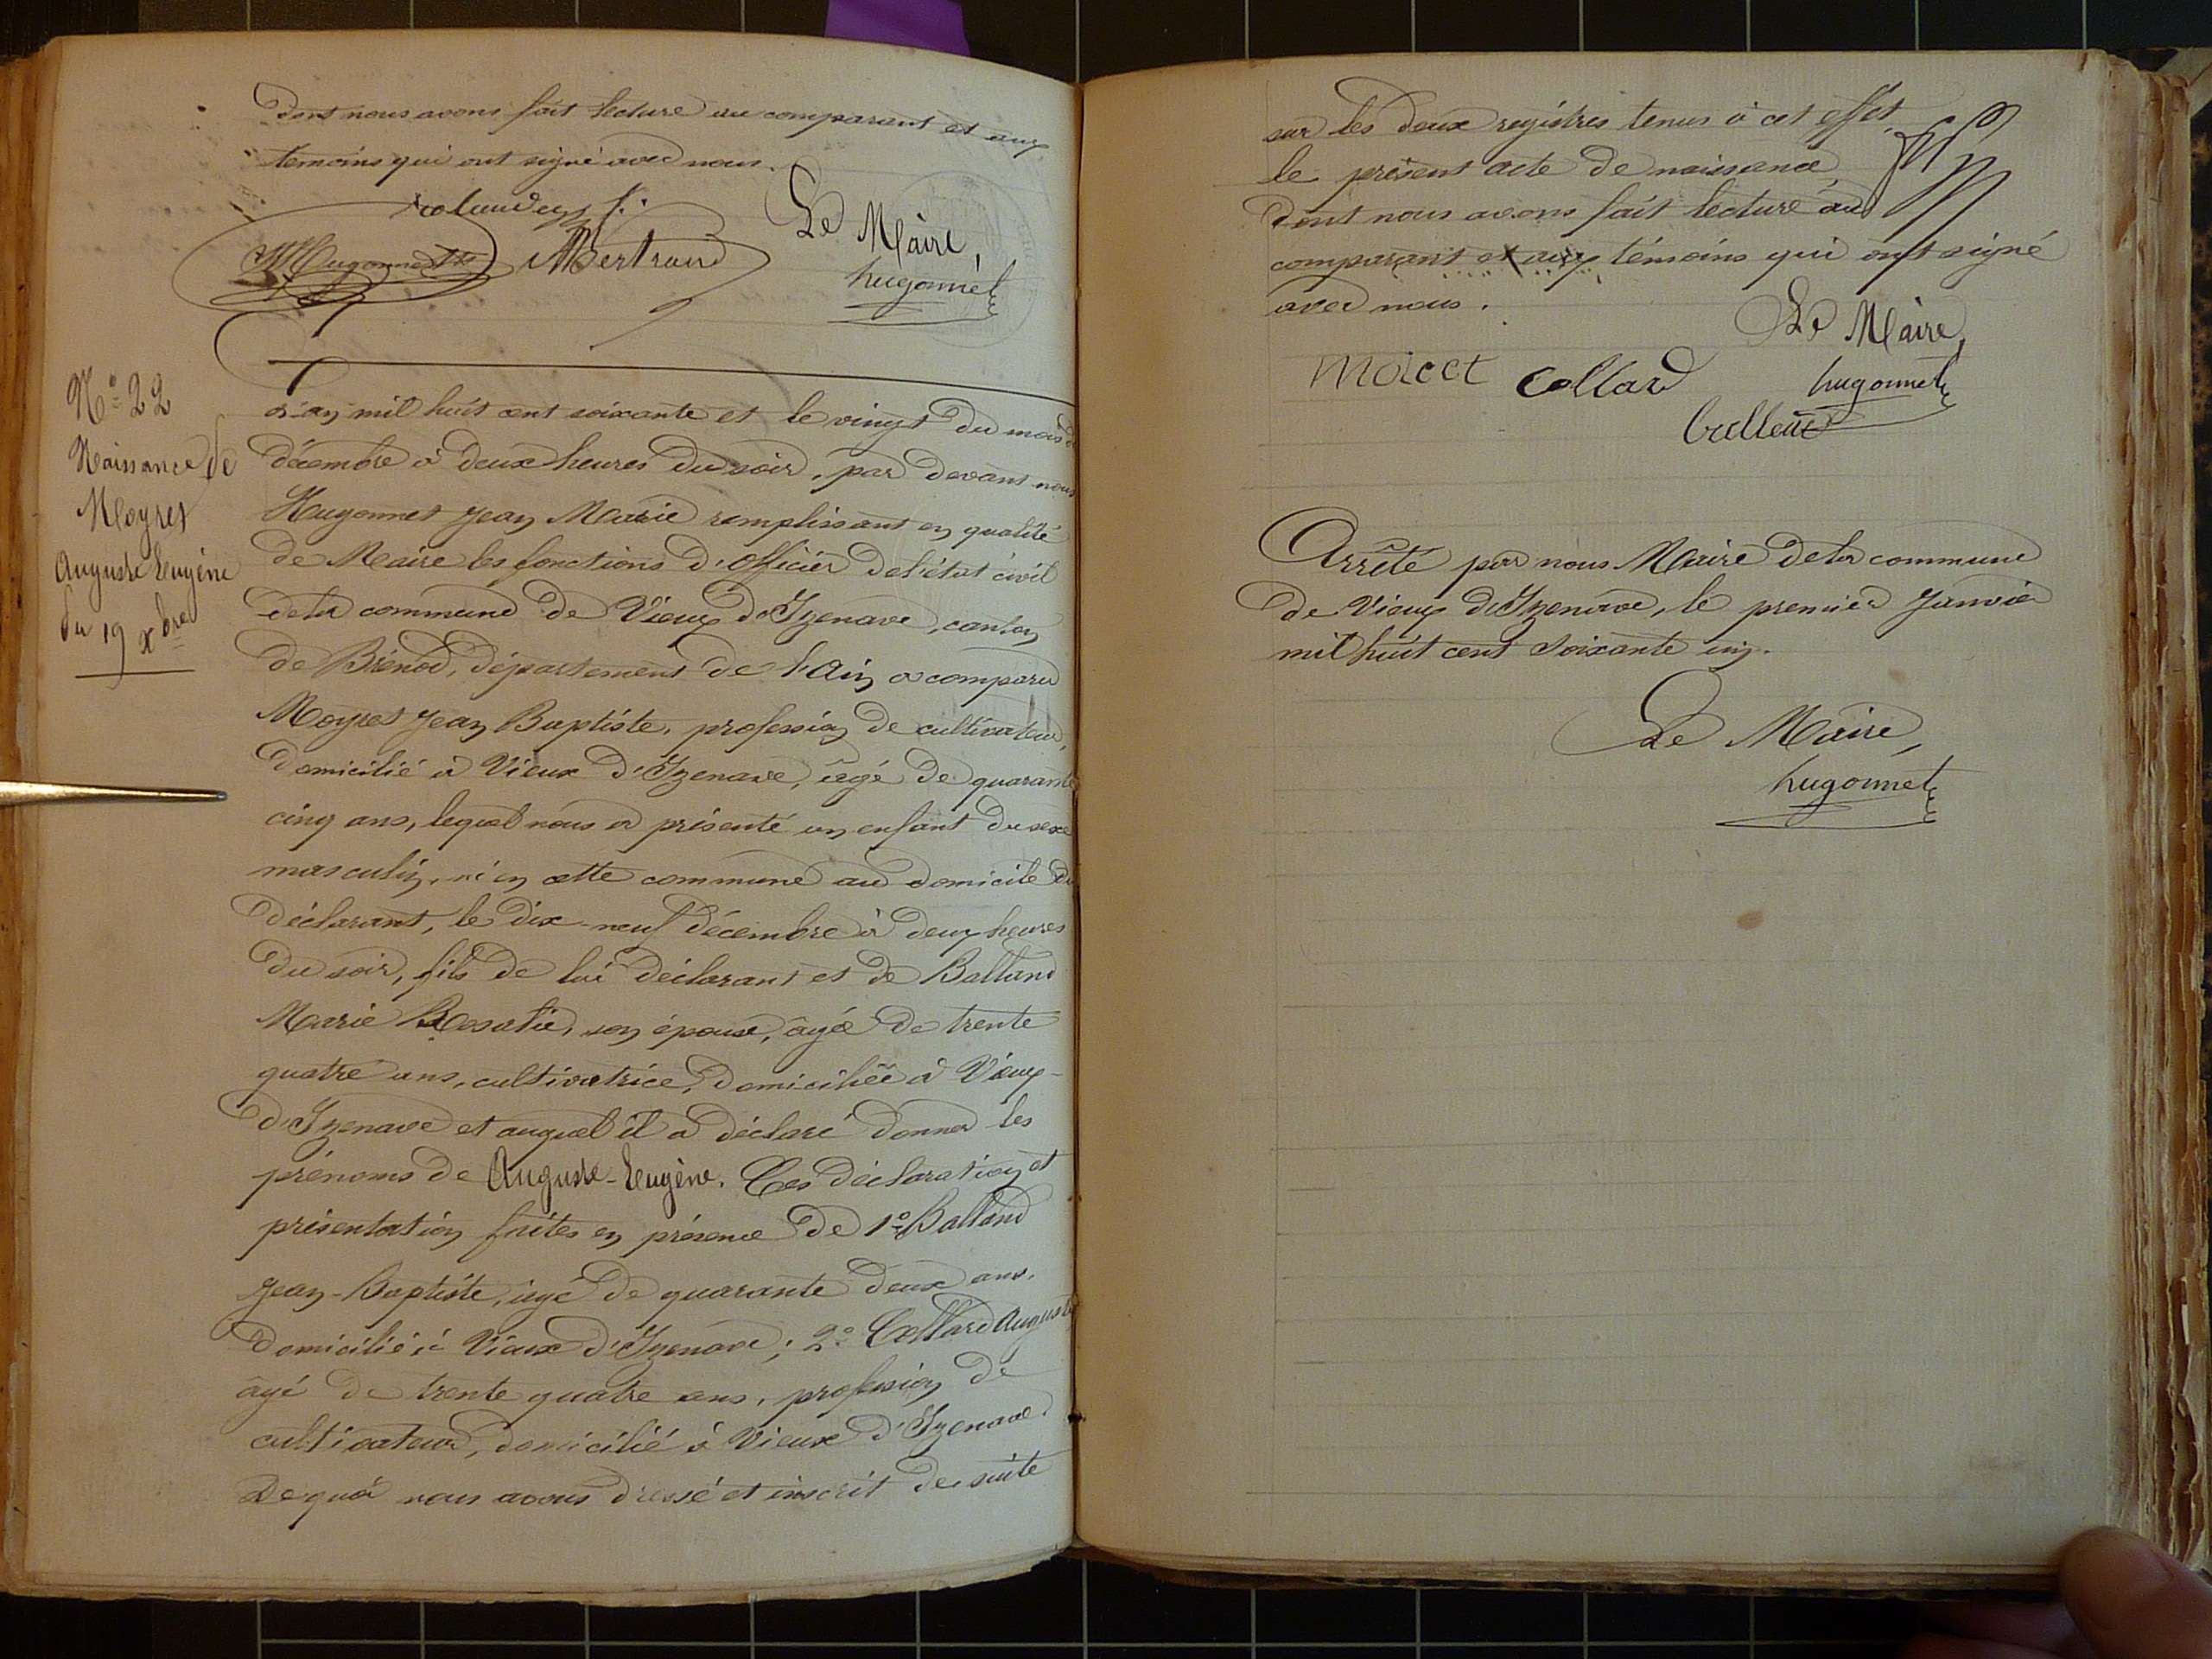 Dont nous avons fait lecture au comparant et aux
témoins qui ont signé avec nous.
Le Maire,
Bertrand
hugonnet
N° 22
Naissance de
Moyret
Auguste Eugène
du 19 Xbre
L'an mil huit cent soixante et le vingt du mois de
décembre à deux heures du soir, par devant nous
Hugonnet Jean Marie remplissant en qualité
de Maire les fonctions d'Officier de l'état civil
de la commune de Vieux d'Izenave, canton
de Brénod, département de l'Ain a comparu
Moyret Jean Baptiste, profession de cultivateur,
domicilié à Vieux d'Izenave, âgé de quarante
cinq ans, lequel nous a présenté un enfant du sexe
masculin, né en cette commune au domicile du
déclarant, le dix-neuf décembre à deux heures
du soir, fils de lui déclarant et de Balland
Marie Rosalie, son épouse, âgée de trente
quatre ans, cultivatrice, domiciliée à Vieux-
d'Izenave et auquel il a déclaré donner les
prénoms de Auguste-Eugène. Ces déclaration et
présentation faites en présence de 1° Balland
Jean-Baptiste, âgé de quarante deux ans,
domicilié à Vieux d'Izenave; 2° Collard Auguste
âgé de trente quatre ans, profession de
cultivateur, domicilié à Vieux d'Izenave.
De quoi nous avons dressé et inscrit de suite
sur les deux registres tenus à cet effet
le présent acte de naissance,
dont nous avons fait lecture au
comparant et aux témoins qui ont signé
avec nous.
Le Maire,
Collard
hugonnet
Arrêté par nous Maire de la commune
de Vieux d'Izenave, le premier Janvier
mil huit cent soixante un.
Le Maire,
hugonnet